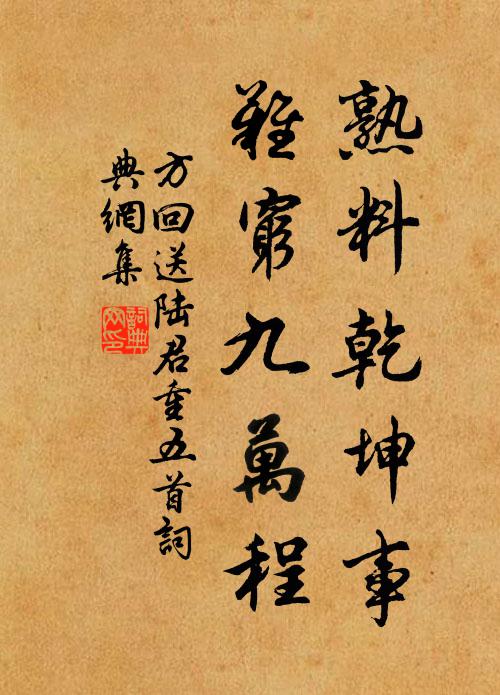 熟料乾坤事
難窮九萬程
方回送陸君重五首詞
典網集
詞典網印